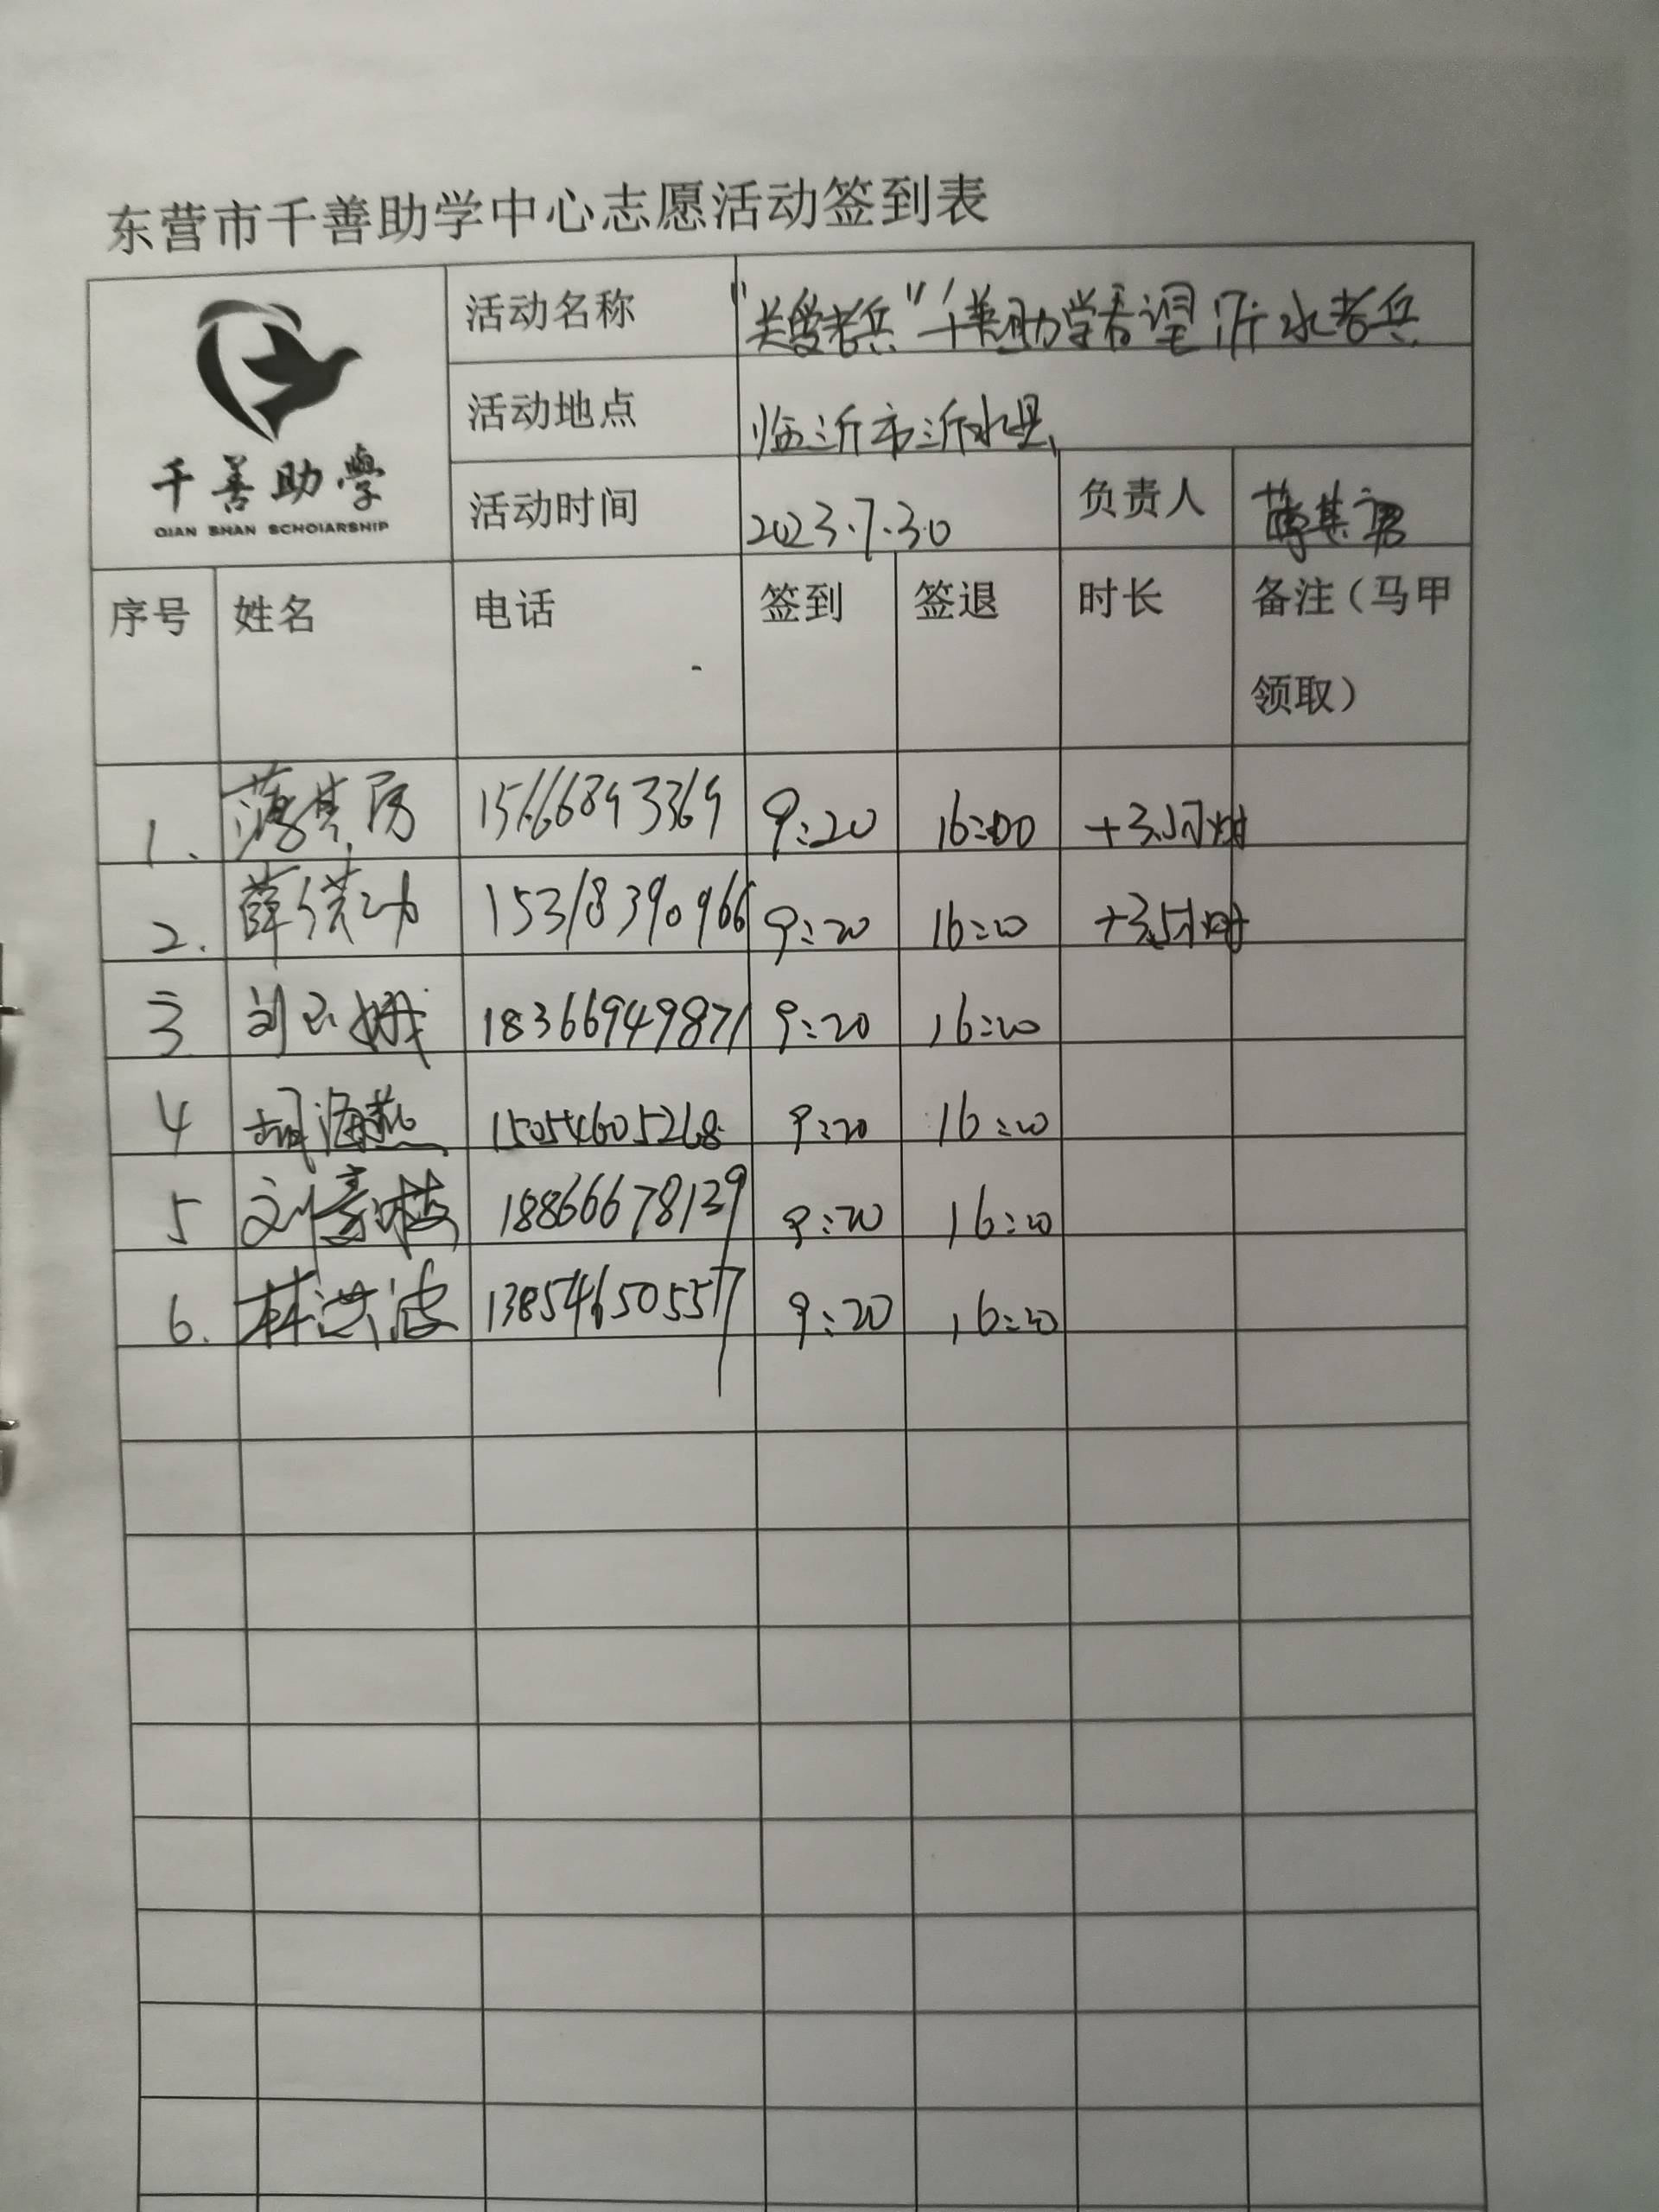 东营市千善助学中心志愿活动签到表
千善助學
QIAN SHAN SCHOIARSHIP
活动名称 "关爱老兵"千善助学看望沂水老兵
活动地点 临沂市沂水县
活动时间 2023.7.30 负责人
序号 姓名 电话 签到 签退 时长 备注(马甲
领取)
1. 15666893369 9:20 16:00 +3.5小时
2. 15318390966 9:20 16:20 +3.5小时
3 18366949871 9:20 16:20
4 胡海燕 15054605268 9:20 16:20
5 18866678139 9:20 16:20
6. 林洪波 13854650557 9:20 16:20